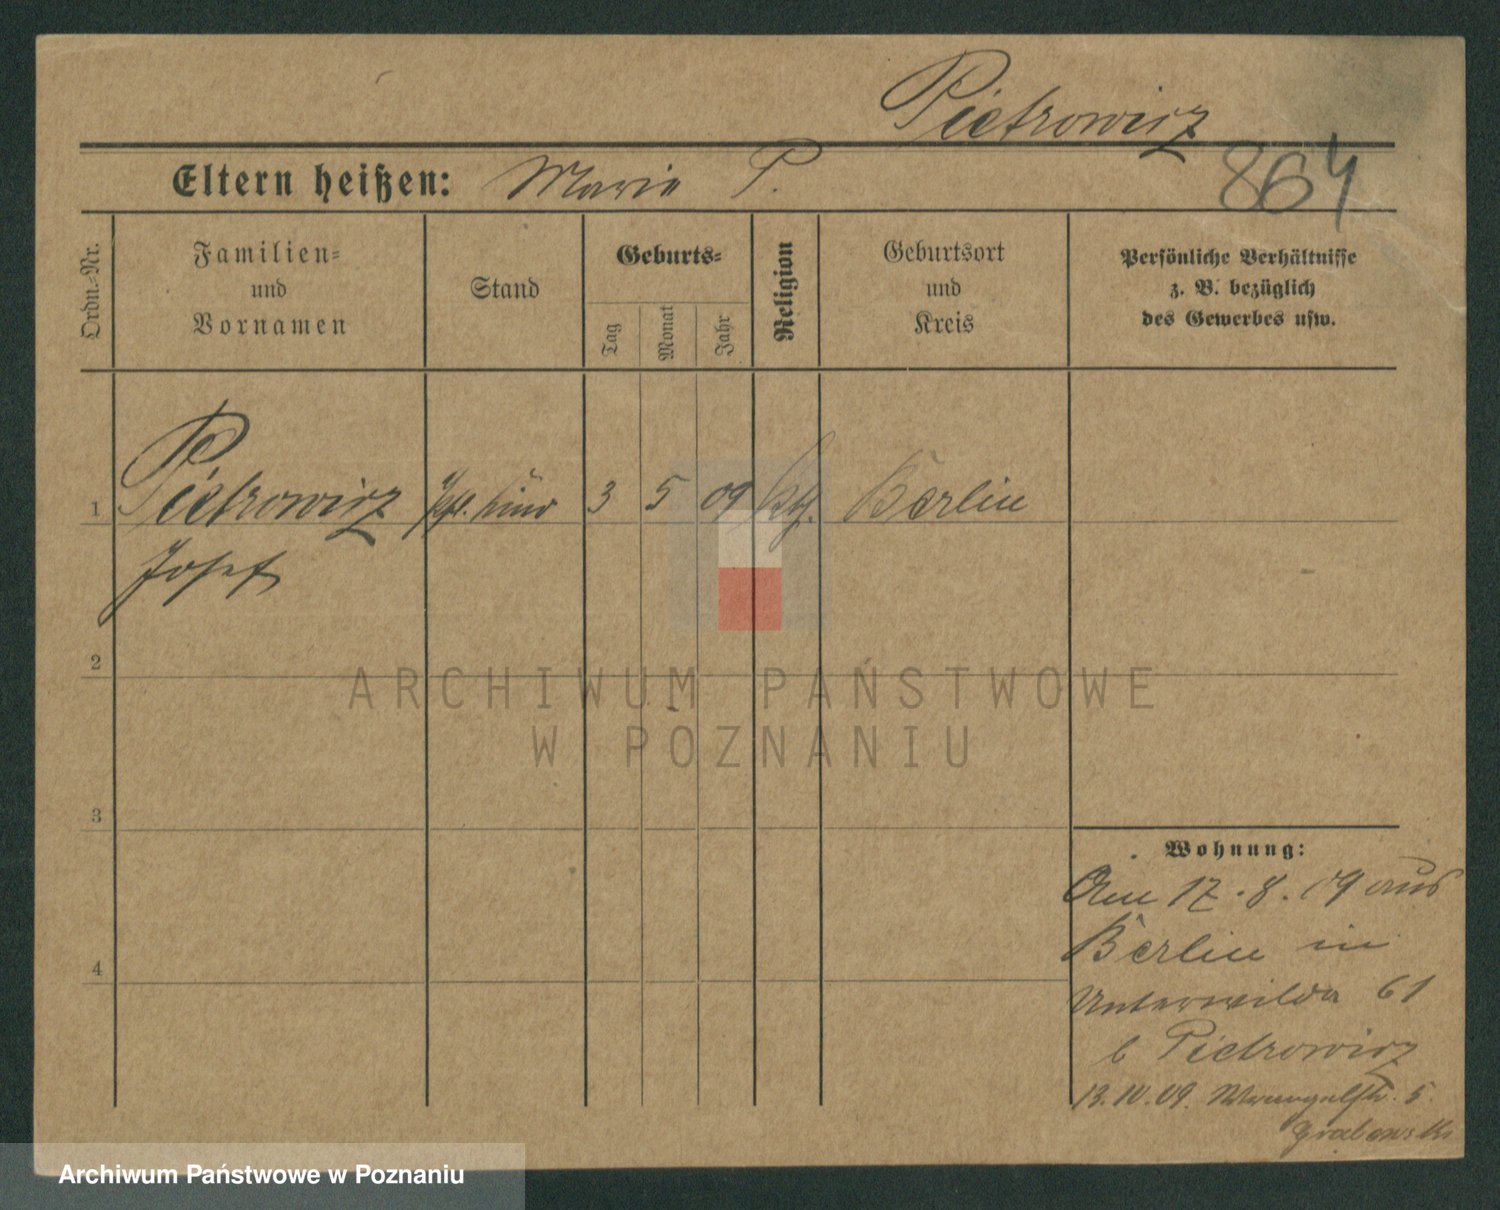 Pietrowicz
864
Eltern heißen: Maria P.
Ordn.-Nr.
Familien-
und
Vornamen
Stand
Geburts-
Tag
Monat
Jahr
Religion
Geburtsort
und
Kreis
Persönliche Verhältnisse
z. B. bezüglich
des Gewerbes usw.
1 Pietrowicz Pfl. Kind 3 5 09 kth. Berlin
Josef
2
3
4
ARCHIWUM PAŃSTWOWE
W POZNANIU
Wohnung:
Am 17.8.09 aus
Berlin in
Unterwilda 61
b Pietrowicz
13.10.09. Wrangelstr. 5.
Grabowski
Archiwum Państwowe w Poznaniu